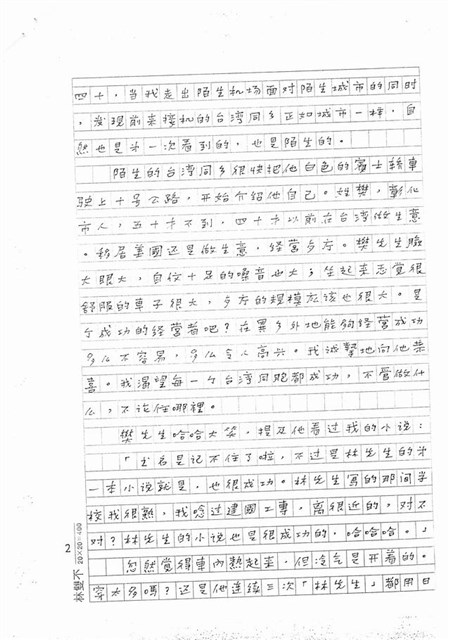 四十，当我走出陌生机场面对陌生城市的同时
，发现前来接机的台湾同乡正如城市一样，自
然也是第一次看到的，也是陌生的。
陌生的台湾同乡很快把他白色的賓士轎車
驶上十号公路，开始介绍他自己。姓樊，彰化
市人，五十才不到，四十才以前在台湾做生意
。移居美國还是做生意，经营多方。樊先生臉
大眼大，自信十足的嗓音也大，坐起来感觉很
舒服的車子很大，多方的規模应该也很大。是
个成功的经营者吧？在異乡外地能夠经营成功
多么不容易，多么令人高兴。我诚摯地向他恭
喜。我渴望每一个台湾同胞都成功，不管做什
么，不论住哪裡。
樊先生哈哈大笑，提及他看过我的小说：
「书名是记不住了啦，不过是林先生的第
一本小说就是，也很成功。林先生寫的那间学
校我很熟，我唸过建國工專，离很近的，对不
对？林先生的小说也是很成功的，哈哈哈。」
忽然觉得車內熱起来，但冷气是开着的。
穿太多嗎？还是他连续三次「林先生」都用日
2
20×20=400
林雙不